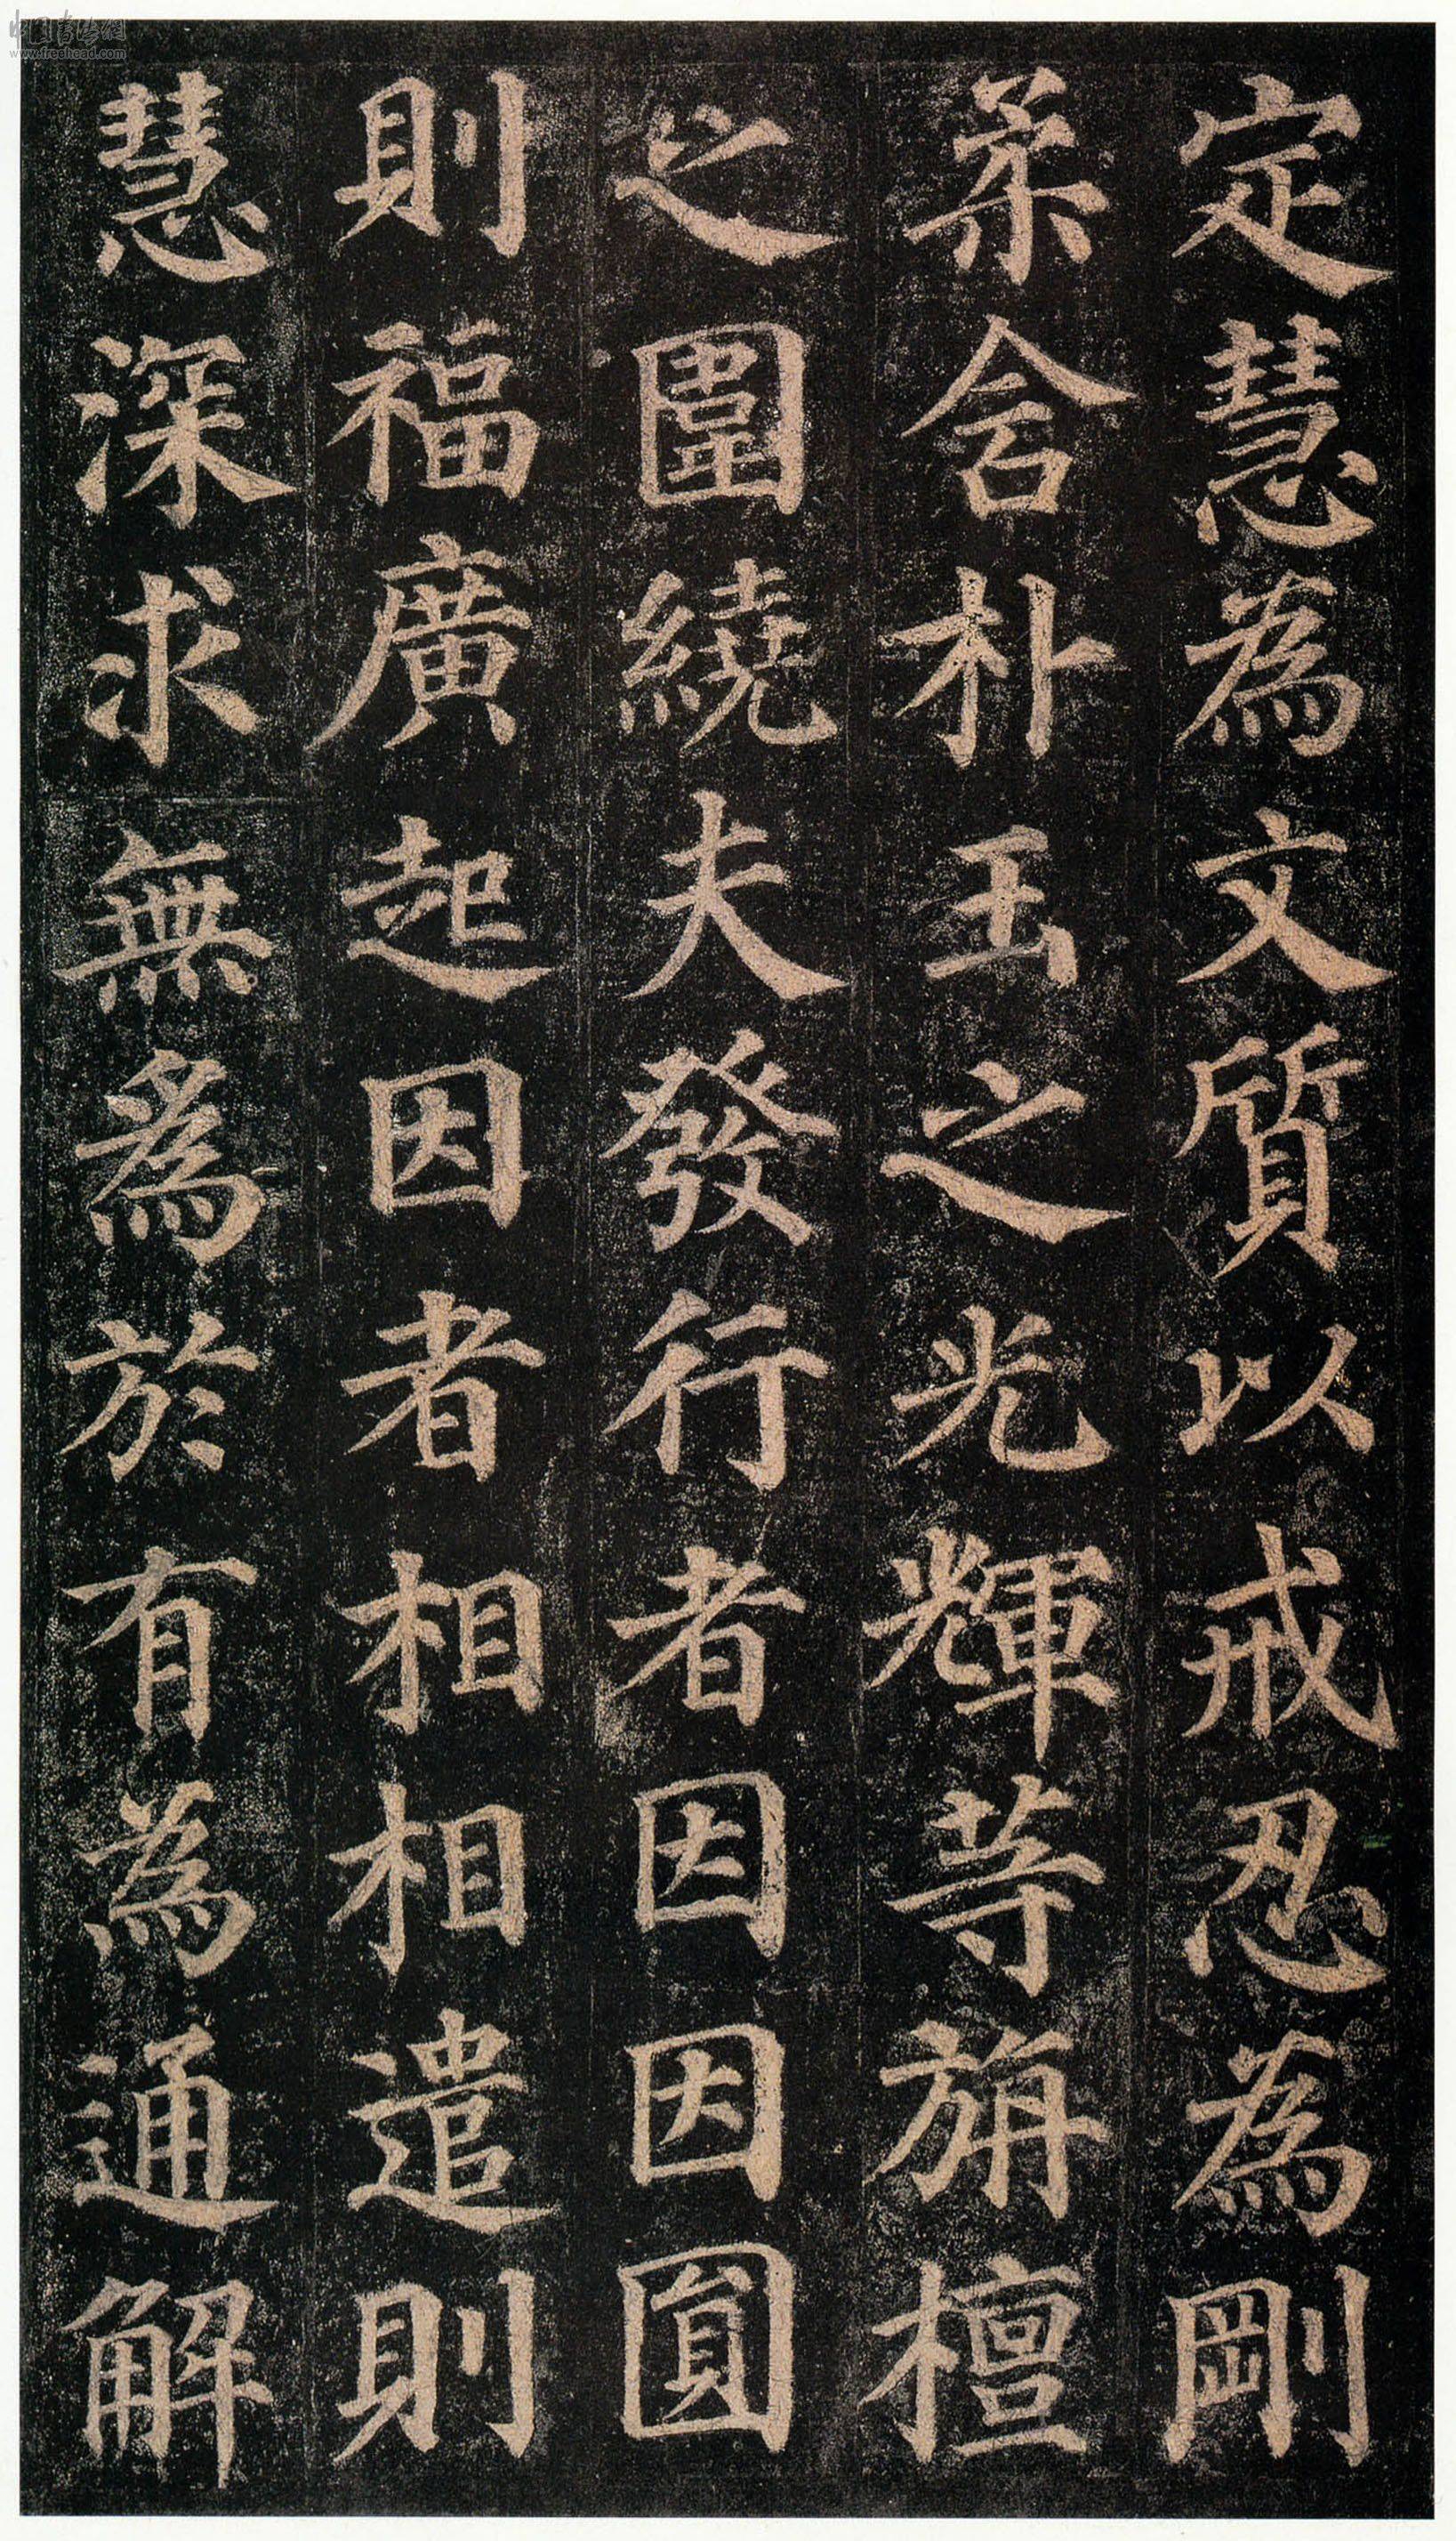 定慧為文質以戒忍為剛
柔含朴玉之光輝等旃檀
之圍繞夫發行者因因圓
則福廣起因者相相遣則
慧深求無為於有為通解
中国书法网
www.freehead.com